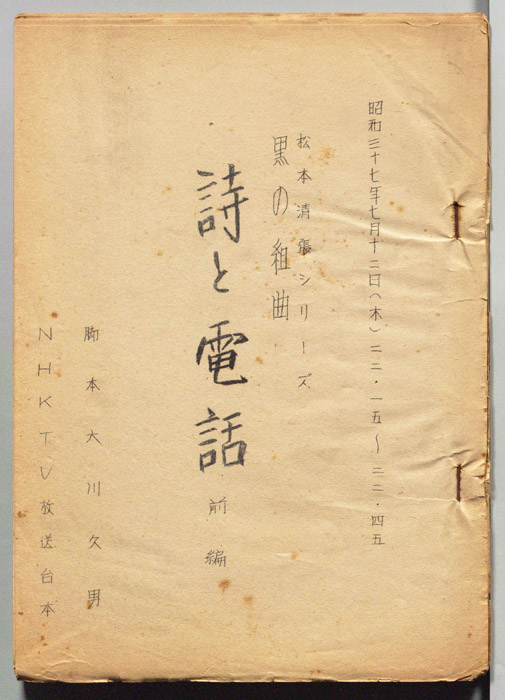 昭和三十七年七月十二日(木)二二・一五〜二二・四五
松本清張シリーズ
黒の組曲
詩と電話 前編
脚本 大川久男
NHKTV放送台本